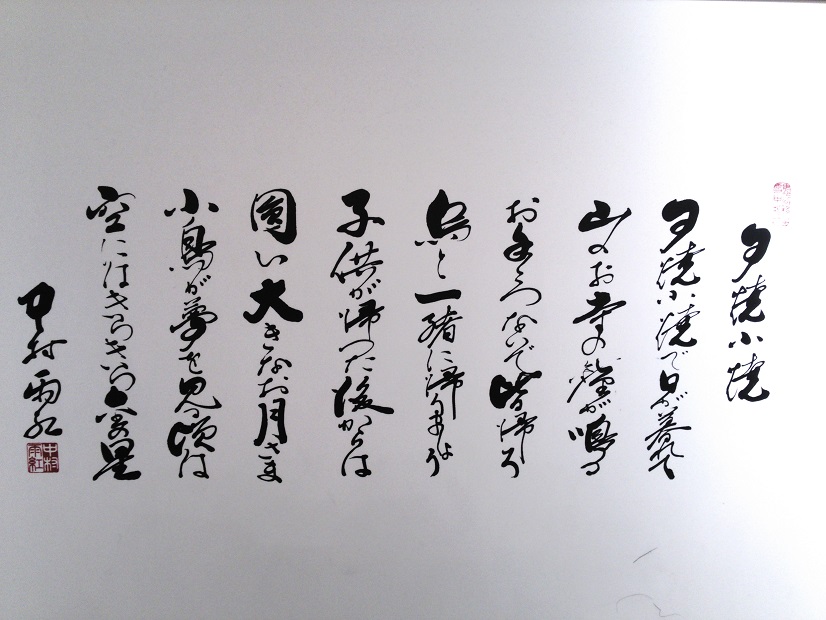 夕焼小焼
夕焼小焼で日が暮れて
山のお寺の鐘が鳴る
お手々つないで皆帰ろ
烏と一緒に帰りましょう
子供が帰った後からは
圓い大きなお月さま
小鳥が夢を見る頃は
空にはきらきら金の星
中村雨紅
中村雨紅